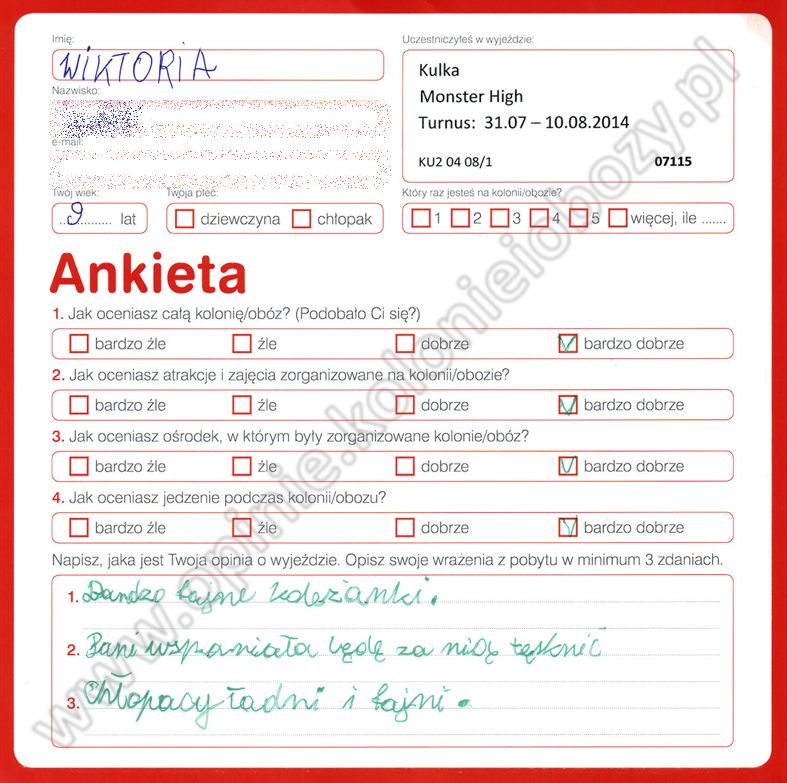 Imię:
WiKTORiA
Nazwisko:
e-mail:
Twój wiek:
9 lat
Twoja płeć:
dziewczyna chłopak
Uczestniczyłeś w wyjeździe:
Kulka
Monster High
Turnus: 31.07 – 10.08.2014
KU2 04 08/1 07115
Który raz jesteś na kolonii/obozie?
1 2 3 4 5 więcej, ile .......
Ankieta
1. Jak oceniasz całą kolonię/obóz? (Podobało Ci się?)
bardzo źle źle dobrze bardzo dobrze
2. Jak oceniasz atrakcje i zajęcia zorganizowane na kolonii/obozie?
bardzo źle źle dobrze bardzo dobrze
3. Jak oceniasz ośrodek, w którym były zorganizowane kolonie/obóz?
bardzo źle źle dobrze bardzo dobrze
4. Jak oceniasz jedzenie podczas kolonii/obozu?
bardzo źle źle dobrze bardzo dobrze
Napisz, jaka jest Twoja opinia o wyjeździe. Opisz swoje wrażenia z pobytu w minimum 3 zdaniach.
1. Bardzo fajne koleżanki.
2. Pani wspaniała będę za nią tęsknić
3. Chłopacy ładni i fajni.
www.opinie.kolonieiobozy.pl